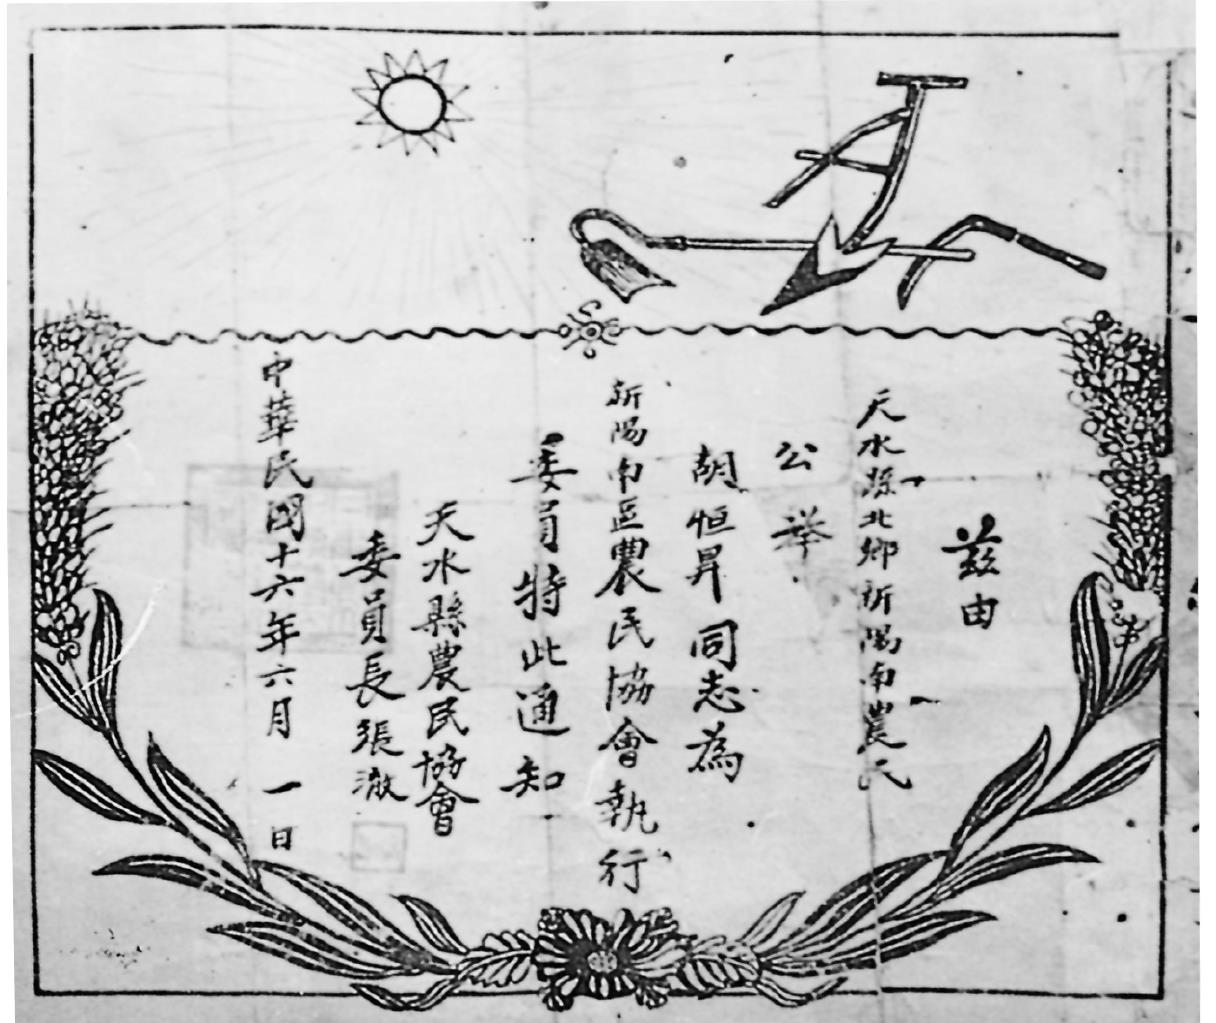 兹由
天水縣北鄉新陽南農民
公举
胡恒昇同志為
新陽南區農民協會執行
委員特此通知
天水縣農民協會
委員長張澈
中華民國十六年六月一日